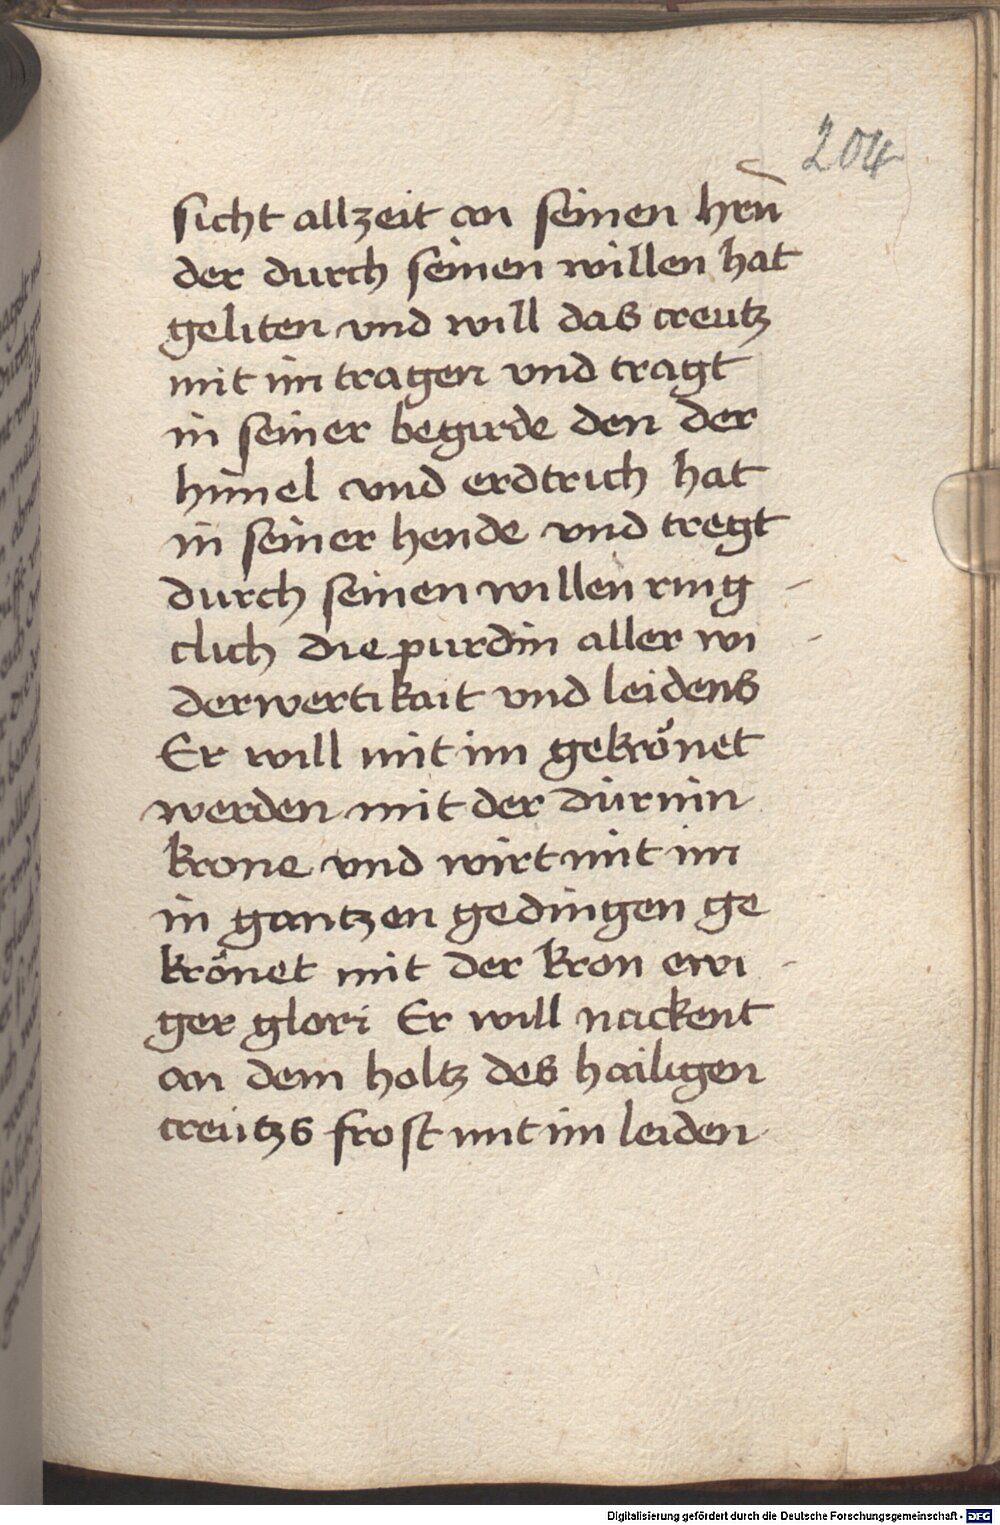 204
sicht allzeit an seinen hrn̄
der durch seinen willen hat
geliten vnd will das creutz
mit im tragen vnd tragt
in seiner begirde den der
himel vnd erdtrich hat
in seiner hende vnd tregt
durch seinen willen ring-
clich die purdin aller wi-
derwertikait vnd leidens
Er will mit im gekrönet
werden mit der dürnin
krone vnd wirt mit im
in gantzen gedingen ge
krönet mit der kron ewi-
ger glori Er will nackent
an dem holtz des hailigen
creützs frost mit im leiden
Digitalisierung gefördert durch die Deutsche Forschungsgemeinschaft - DFG